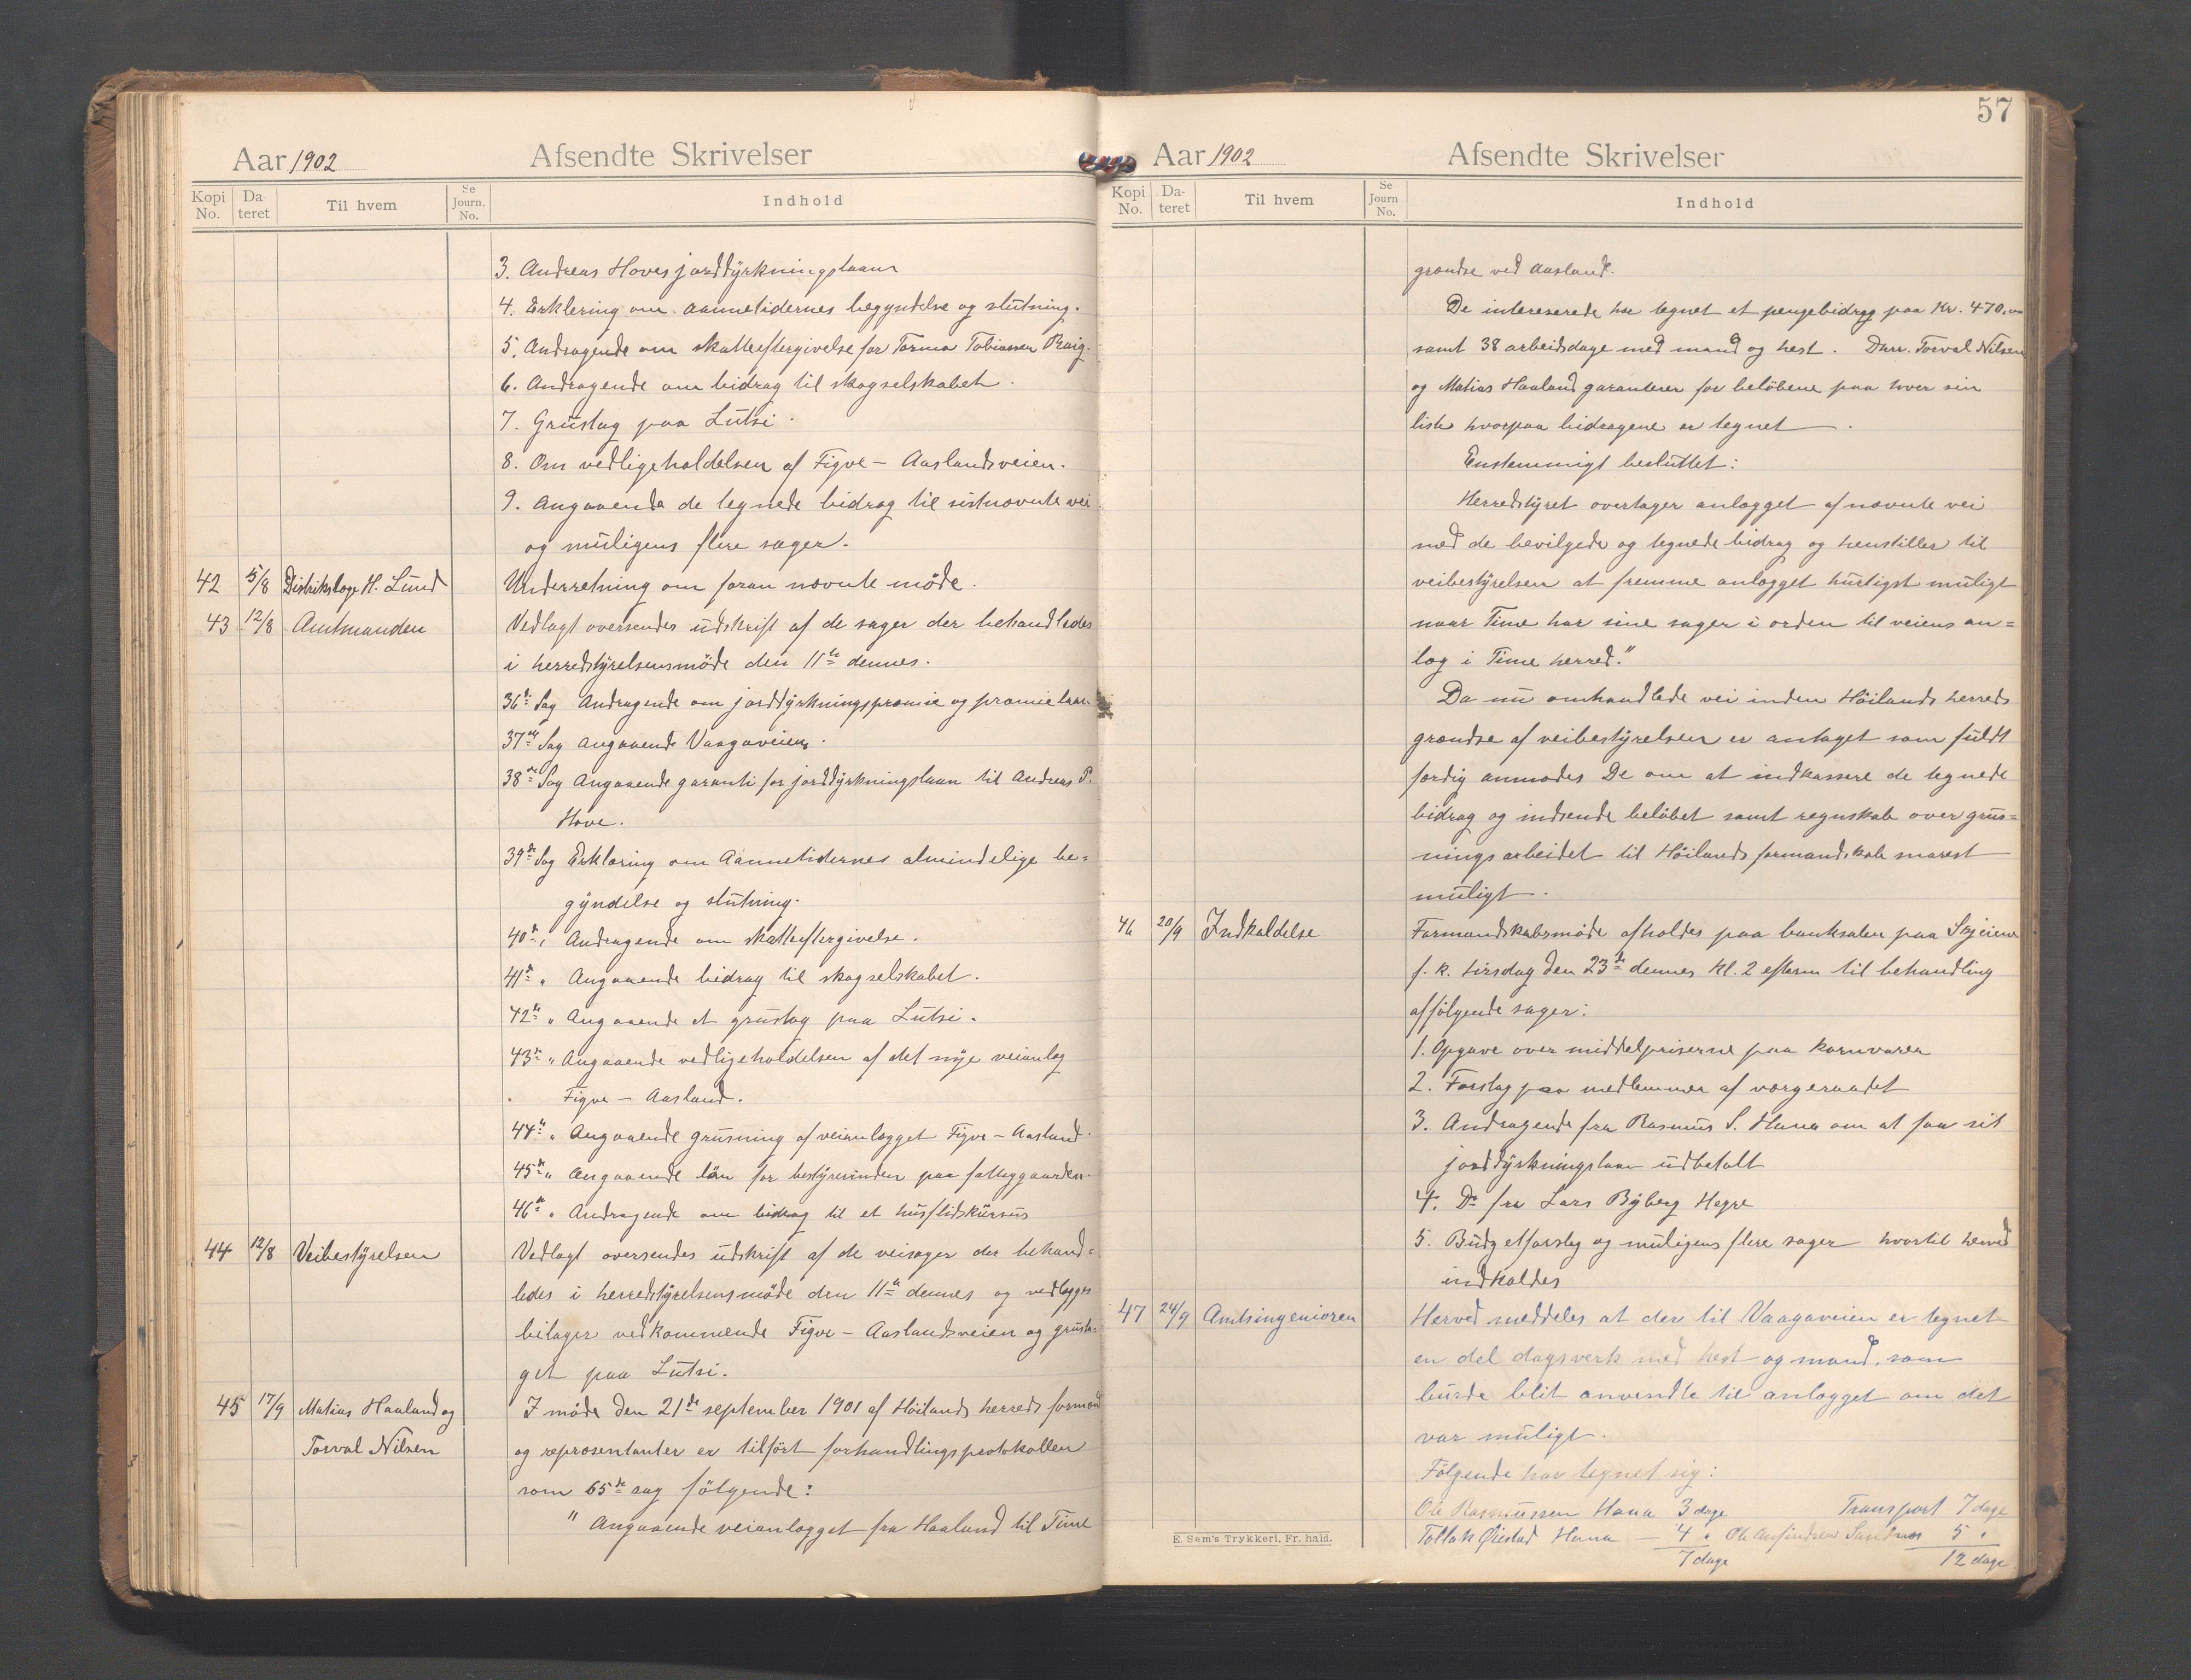 Aar 1902 Afsendte Skrivelser
Kopi No. Da teret Til hvem Se Journ. No. Indhold
3. Andreas Hoves jorddyrkningslaan
4. Erklering om aannetidernes begyndelse og slutning.
5. Andragende om skatteeftergivelse for Tobiassen
6. Andragende om bidrag til skogselskabet.
7. Grustag paa Lutsi.
8. Om vedligeholdelsen af Figve - Aaslandsveien.
9. Angaaende de tegnede bidrag til sistnævnte vei
og muligens flere sager.
42 5/8 Distriktslæge H. Lund Underretning om foran nævnte möde.
43 12/8 Amtmanden Vedlagt oversendes udskrift af de sager der behandledes
i herredstyrelsensmöde den 11te dennes.
36te Sag Andragende om jorddyrkningspræmie og præmielaan.
37te Sag Angaaende Vaagaveien.
38te Sag Angaaende garanti for jorddyrkningslaan til Andreas P.
Hove.
39te Sag Erklæring om Aannetidernes almindelige be=
gyndelse og slutning.
40de " Andragende om skatteeftergivelse.
41de " Angaaende bidrag til skogselskabet.
42de " Angaaende et grustag paa Lutsi.
43de " Angaaende vedligeholdelsen af det nye veianlæg
Figve - Aasland.
44de " Angaaende grusning af veianlægget Figve - Aasland.
45de " Angaaende lön for bestyrerinden paa fattiggaarden.
46de " Andragende om bidrag til et husflidskursus
44 12/8 Veibestyrelsen Vedlagt oversendes udskrift af de veisager der behand=
ledes i herredstyrelsensmöde den 11te dennes og vedlægges
bilager vedkommende Figve - Aaslandsveien og grusta=
get paa Lutsi.
45 17/9 Matias Haaland og I möde den 21de september 1901 af Höilands herreds formænd
Torval Nilsen og repræsentanter er tilfört forhandlingsprotokollen
som 65de sag fölgende:
" Angaaende veianlægget fra Haaland til Time
57
Aar 1902 Afsendte Skrivelser
Kopi No. Da- teret Til hvem Se Journ No. Indhold
grændse ved Aasland.
De intereserede har tegnet et pengebidrag paa Kr. 470,00
samt 38 arbeidsdage med mand og hest. Dhrr. Torval Nilsen
og Matias Haaland garanterer for belöbene paa hver sin
liste hvorpaa bidragene er tegnet.
Enstemmigt besluttet:
Herredstyret overtager anlægget af nævnte vei
med de bevilgede og tegnede bidrag og henstiller til
veibestyrelsen at fremme anlægget hurtigst muligt
naar Time har sine sager i orden til veiens an=
læg i Time herred."
Da nu omhandlede vei inden Höilands herreds
grændse af veibestyrelsen er antaget som fuldt
færdig anmodes De om at indkassere de tegnede
bidrag og indsende belöbet samt regnskab over grus=
ningsarbeidet til Höilands formandskab snarest
muligt.
46 20/9 Indkaldelse Formandskabsmöde afholdes paa banksalen paa Skjeiene
f. k. tirsdag den 23de dennes kl. 2 efterm til behandling
af fölgende sager:
1. Opgave over middelpriserne paa kornvarer
2. Forslag paa medlemmer af værgeraadet
3. Andragende fra Rasmus S. Hana om at faa sit
jorddyrkningslaan udbetalt
4. Do fra Lars Byberg Hegre
5. Budgetforslag og muligens flere sager hvortil herved
indkaldes
47 24/9 Amtsingeniören Herved meddeles at der til Vaagaveien er tegnet
en del dagsverk med hest og mand, som
burde blit anvendte til anlægget om det
var muligt.
Fölgende har tegnet sig:
Ole Rasmussen Hana 3 dage Transport 7 dage
Tollak Øiestad Hana - 4 " Ole Sandnes 5 "
7 dage 12 dage
E. Sem's Trykkeri, Fr. hald.